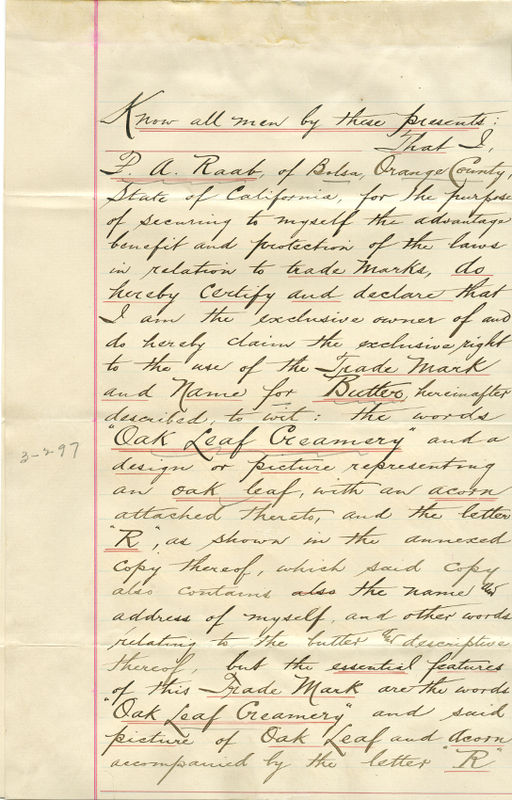 Know all men by these presents:
That I,
P. A. Raab, of Bolsa, Orange County,
State of California, for the purpose
of securing to myself the advantage
benefit and protection of the laws
in relation to trade marks, do
hereby certify and declare that
I am the exclusive owner of and
do hereby claim the exclusive right
to the use of the Trade Mark
and Name for Butter, hereinafter
described, to wit: the words
"Oak Leaf Creamery" and a
3-2-97
design or picture representing
an oak leaf, with an acorn
attached thereto, and the letter
"R", as shown in the annexed
copy thereof, which said copy
also contains also the name and
address of myself, and other words
relating to the butter and descriptive
thereof, but the essential features
of this Trade Mark are the words
"Oak Leaf Creamery" and said
picture of Oak Leaf and Acorn
accompanied by the letter "R"